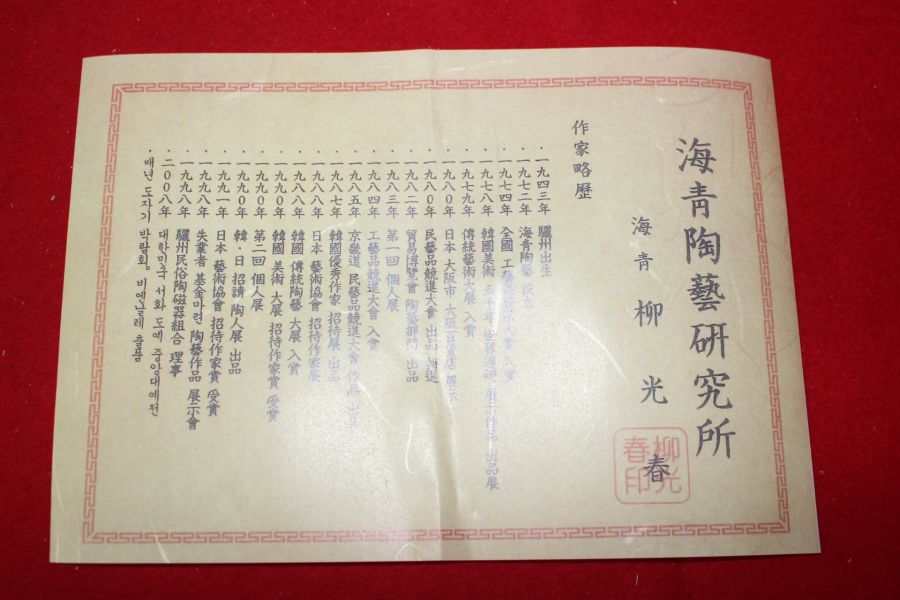 海青陶藝硏究所
海青 柳光春
柳光春印
作家略歷
· 一九四三年 驪州出生
· 一九七二年 海青陶藝 設立
· 一九七四年 全國 工藝 入賞
· 一九七八年 韓國美術 五千年 世界 展示作品 出品展
· 一九七九年 傳統藝術大展 入賞
· 一九八〇年 日本 大阪市 大阪百貨店 展示
· 一九八〇年 民藝品競進大會 出品
· 一九八二年 貿易博覽會 陶藝部門 出品
· 一九八三年 第一回 個人展
· 一九八四年 工藝品競進大會 入賞
· 一九八五年 京畿道 民藝品競進大會 作品 出品
· 一九八七年 韓國優秀作家 招待展 出品
· 一九八八年 日本 藝術協會 招待作家展
· 一九八八年 韓國 傳統陶藝 大展 入賞
· 一九九〇年 韓國 美術 大展 招待作家賞 受賞
· 一九九〇年 第二回 個人展
· 一九九〇年 韓·日 招請 陶人展 出品
· 一九九一年 日本 藝術協會 招待作家賞 受賞
· 一九九八年 失業者 基金마련 陶藝作品 展示會
· 一九九八年 驪州民俗陶磁器組合 理事
· 二〇〇八年 대한민국 서화 도예 중앙대예전
· 매년 도자기 박람회, 비엔날레 출품